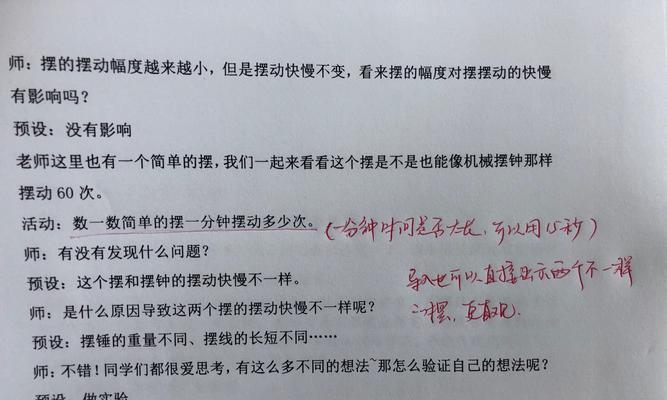 师：摆的摆动幅度越来越小，但是摆动快慢不变，看来摆的幅度对摆摆动的快慢
有影响吗？
预设：没有影响
老师这里也有一个简单的摆，我们一起来看看这个摆是不是也能像机械摆钟那样
摆动 60 次。
活动：数一数简单的摆一分钟摆动多少次。（一分钟时间是否太长，可以用15秒）
师：有没有发现什么问题？
预设：这个摆和摆钟的摆动快慢不一样。
导入也可以直接出示两个不一样
师：是什么原因导致这两个摆的摆动快慢不一样呢？
摆，更直观.
预设：摆锤的重量不同、摆线的长短不同……
师：不错！同学们都很爱思考，有这么多不同的想法~那怎么验证自己的想法呢？
预设：做实验